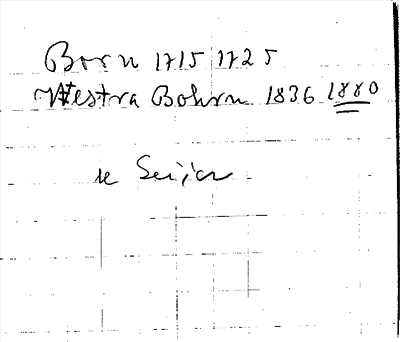 Born 1715 1725
Westra Bohrn 1836 1880
se Seijar